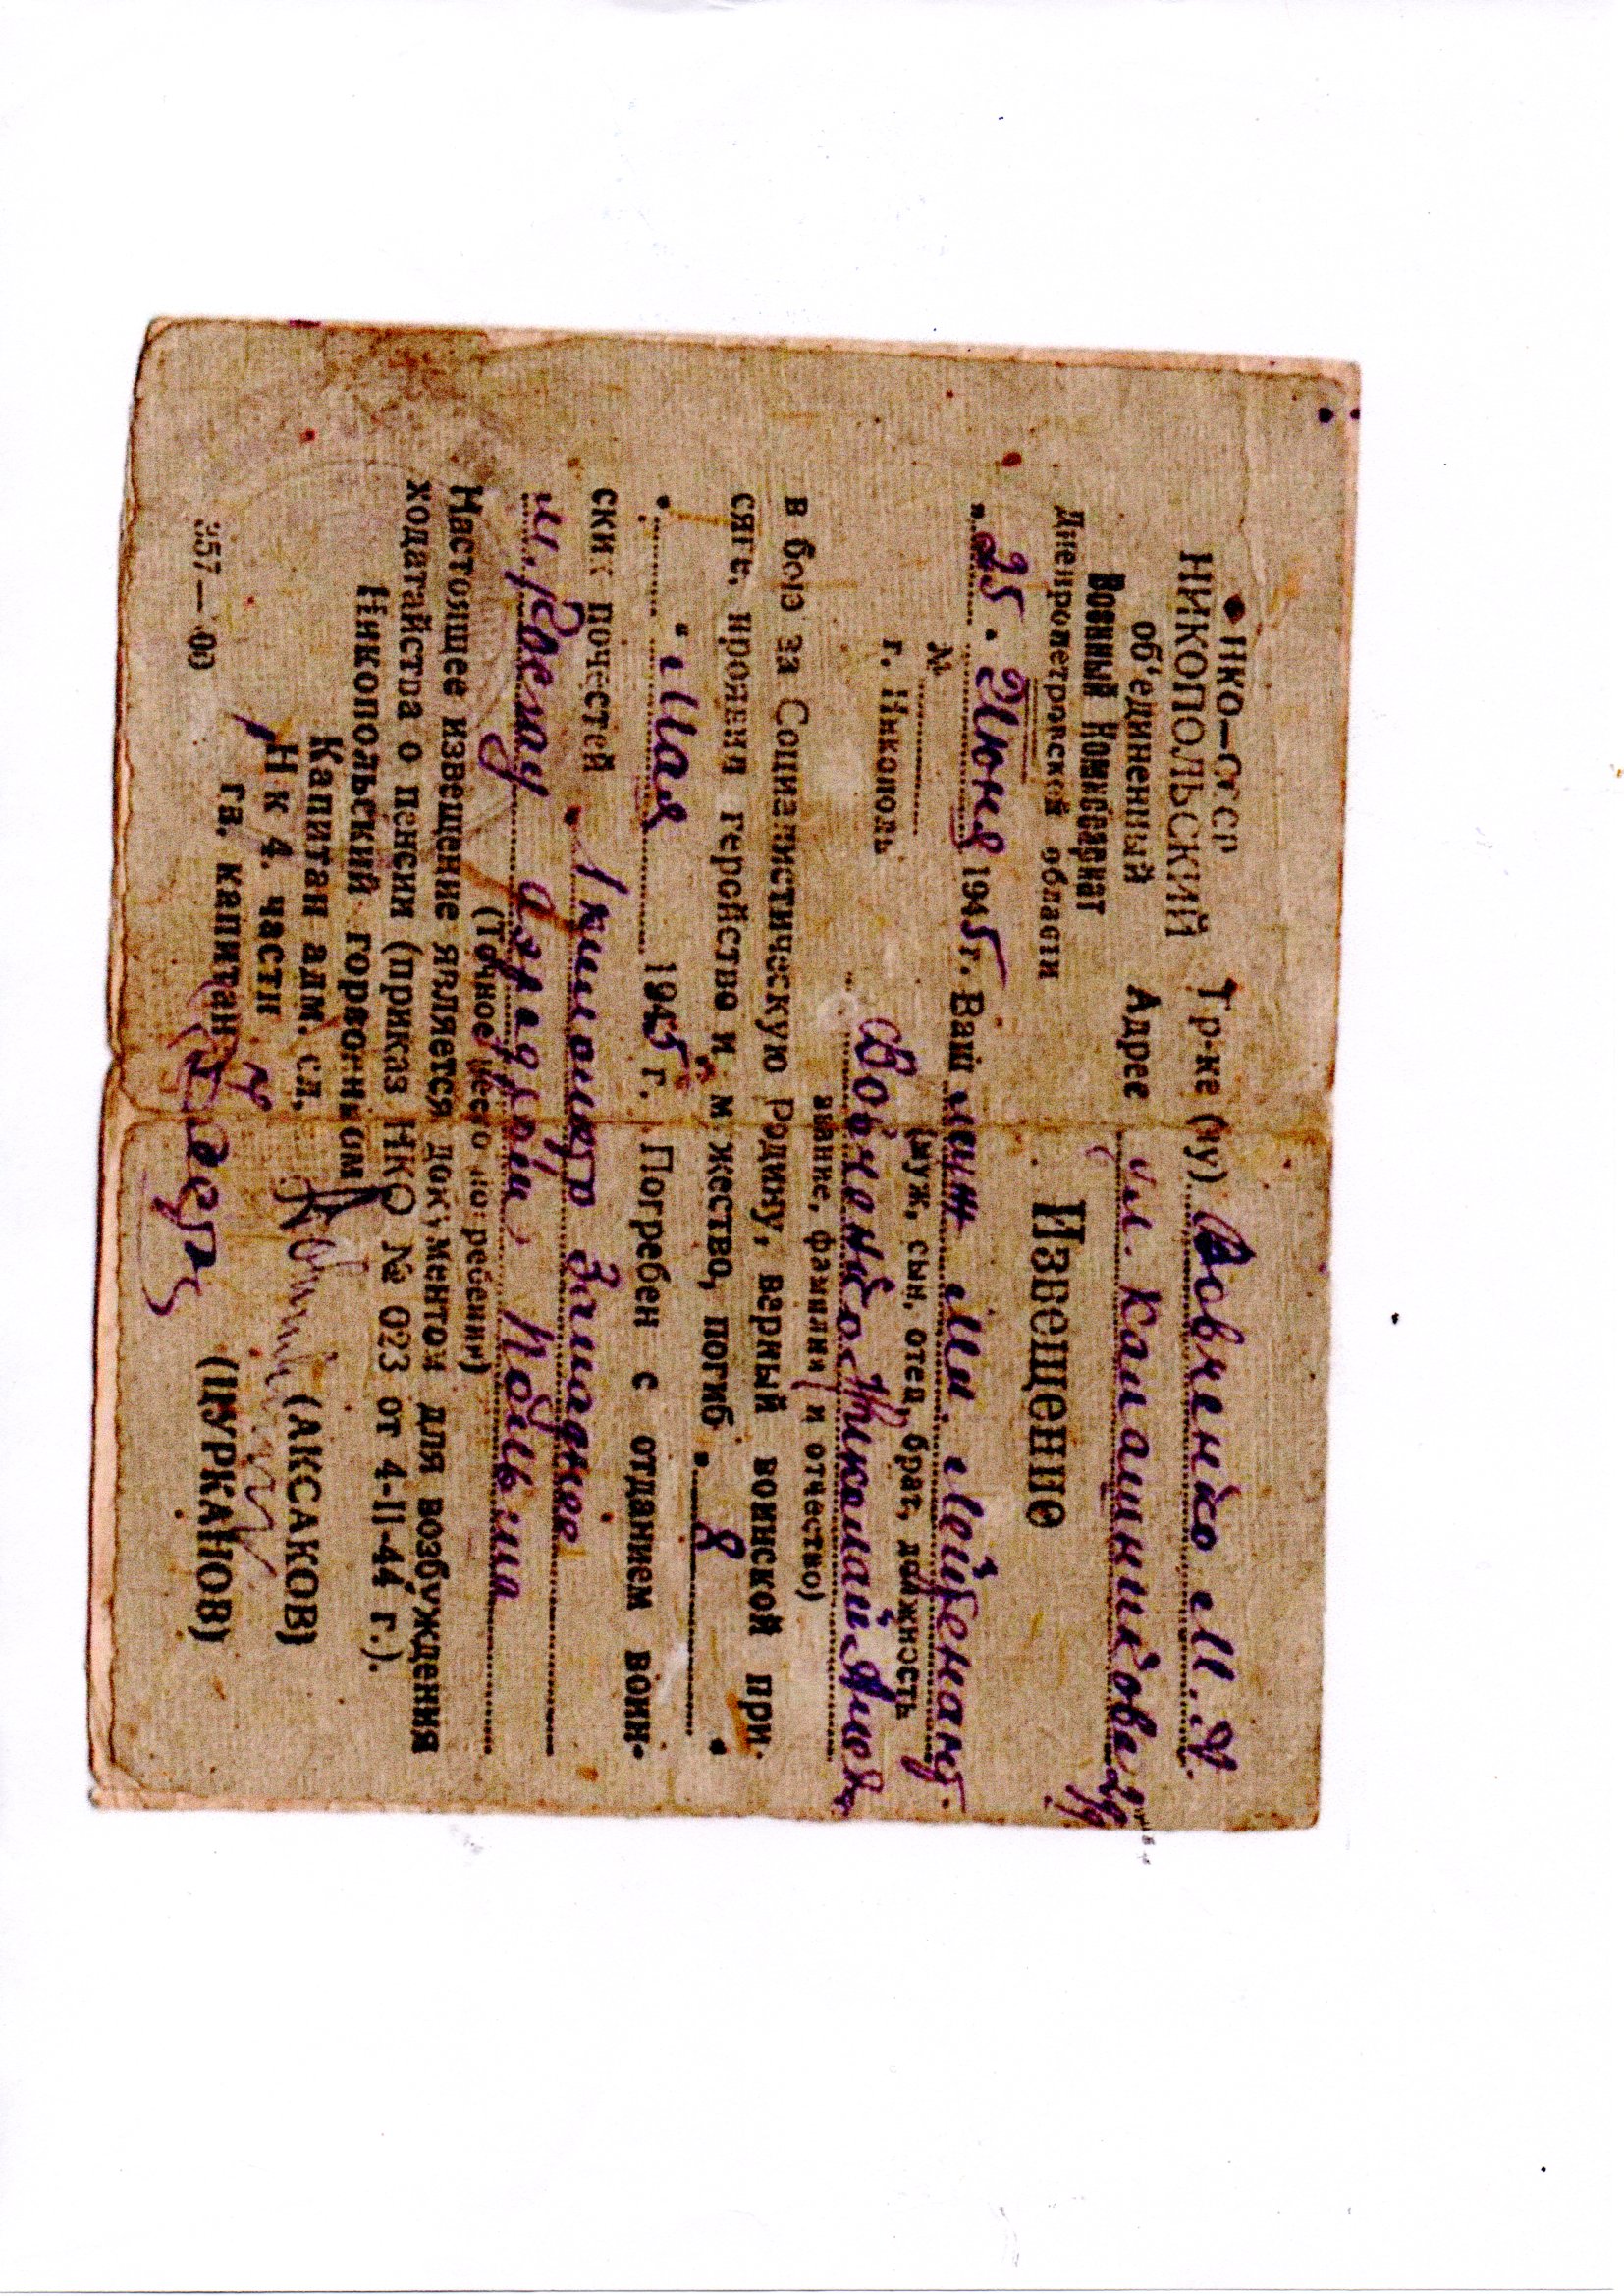 НКО—СССР
НИКОПОЛЬСКИЙ
об'единенный
Военный Комиссариат
Днепропетровской области
„ 25 „ Июня 1945 г.
№
г. Никополь
Т-р-ке (ну) Вовченко М. А.
Адрес ул. Калашникова
Извещение
Ваш сын Мл. Лейтенант
(муж, сын, отец, брат, должность
Вовченко Николай
звание, фамилия и отчество)
в бою за Социалистическую Родину, верный воинской при-
сяге, проявив геройство и мужество, погиб „ 8 „
„ „ Мая 1945 г. Погребен с отданием воин-
ских почестей 1 километр Западнее
(Точное место погребения)
Настоящее извещение является документом для возбуждения
ходатайства о пенсии (приказ НКО № 023 от 4-II-44 г.).
Никопольский горвоенком
Капитан адм. сл. (АКСАКОВ)
Н к 4. части
гв. капитан (ЦУРКАНОВ)